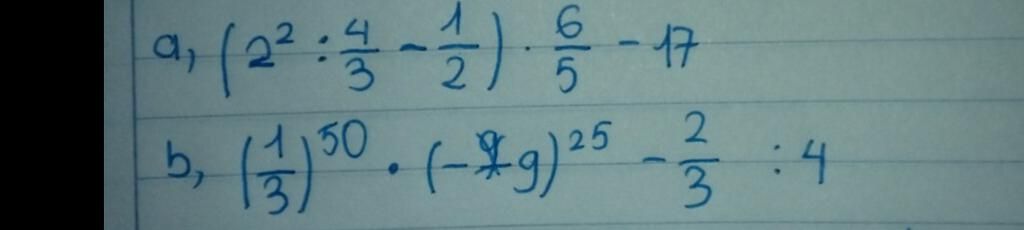 a, (2² : 4/3 - 1/2) · 6/5 - 17
b, (1/3)⁵⁰ · (-9)²⁵ - 2/3 : 4